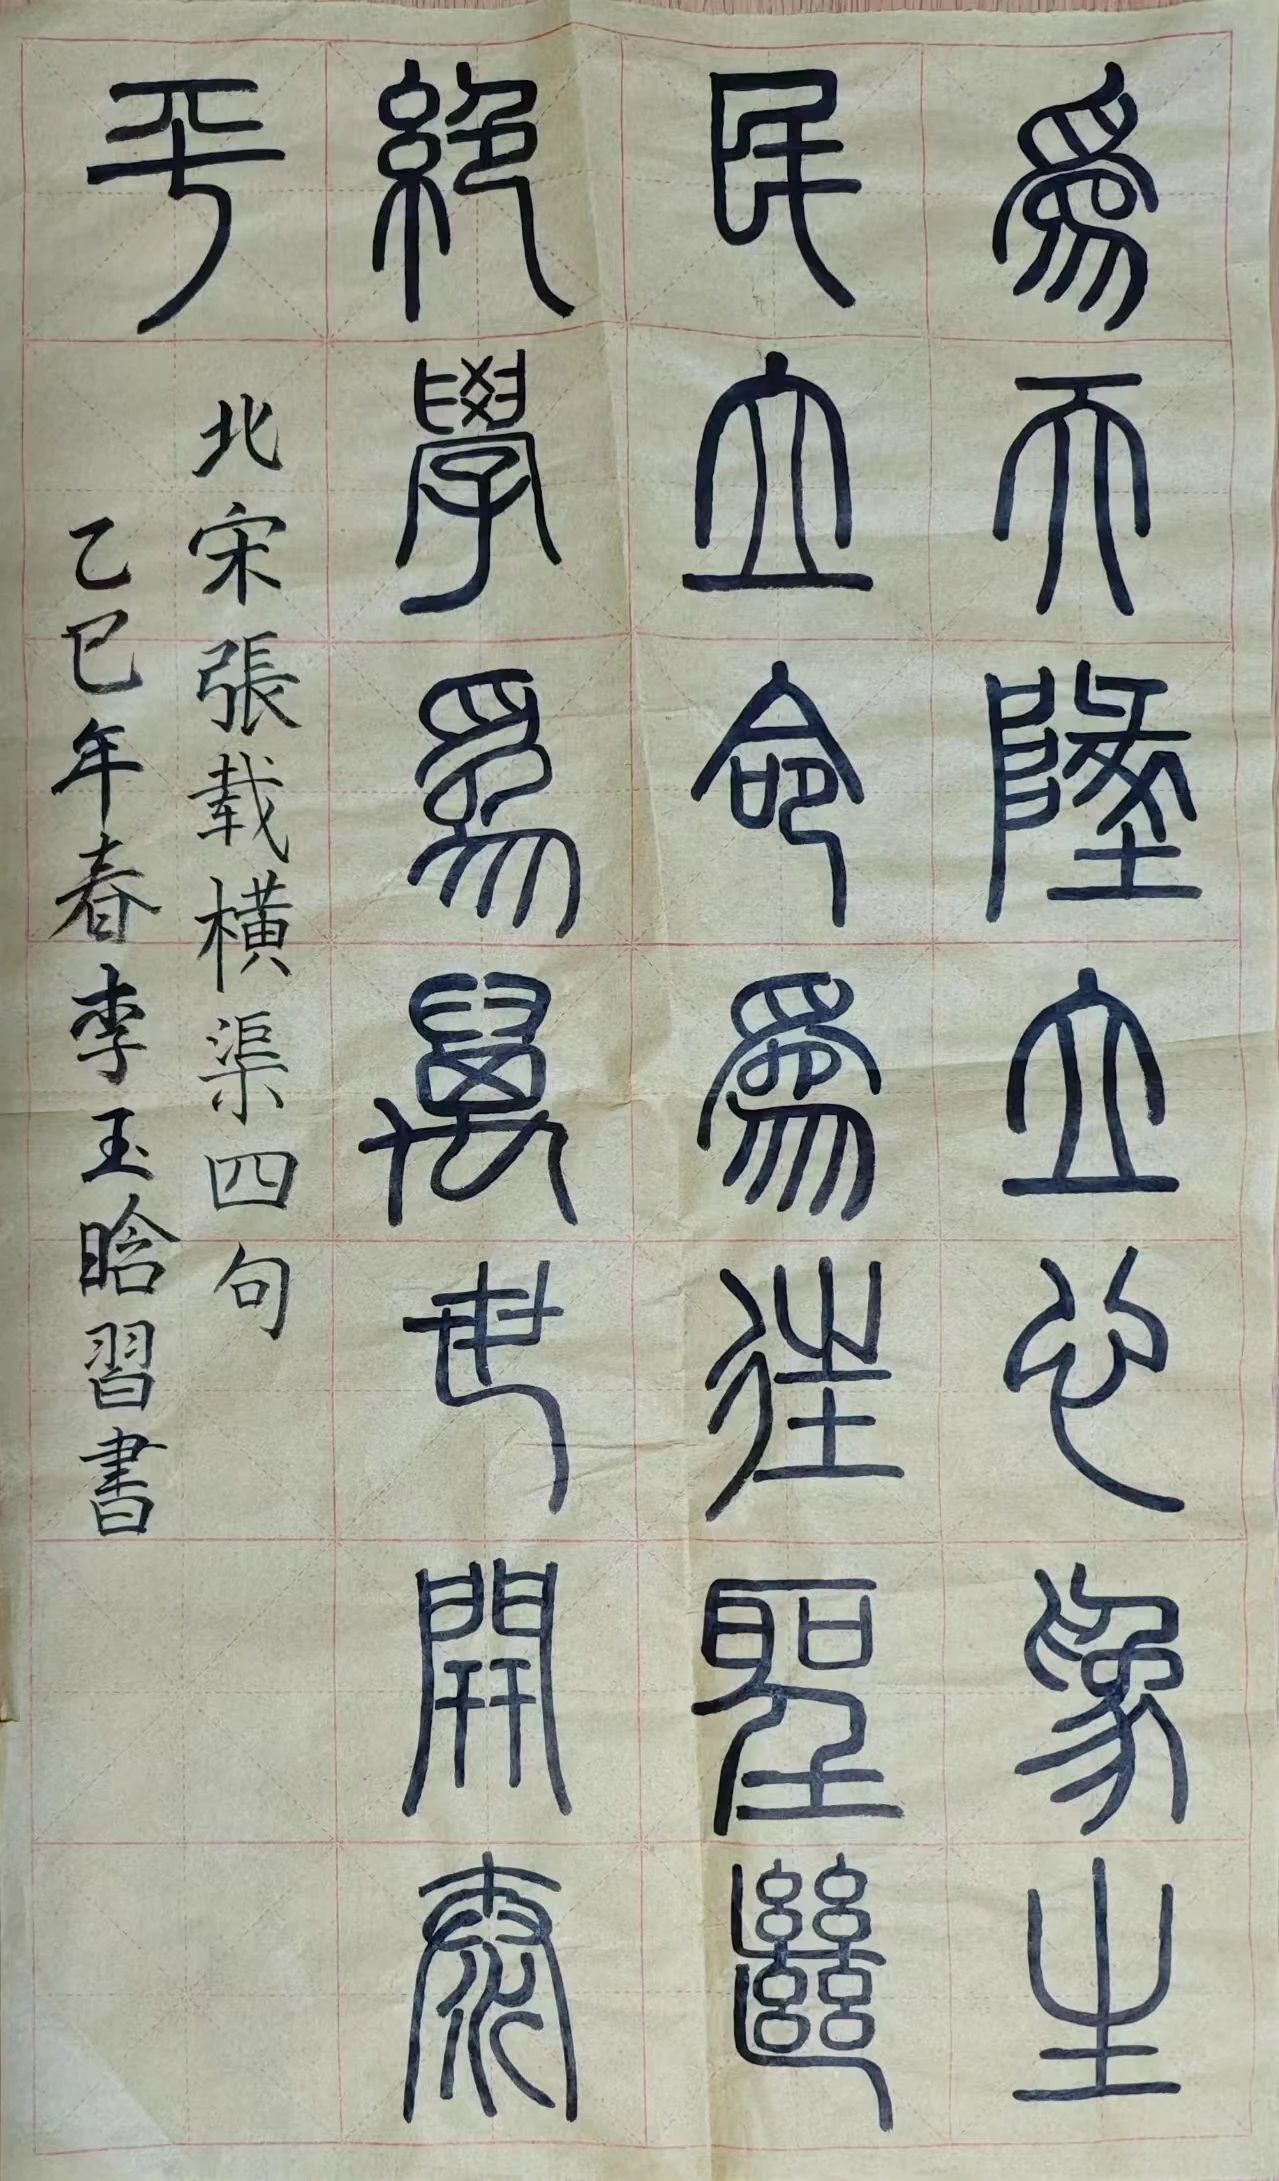 爲天墬立心爲生
民立命爲往聖㡭
絕學爲萬世開泰
平
北宋張载横渠四句
乙巳年春李玉晗習書